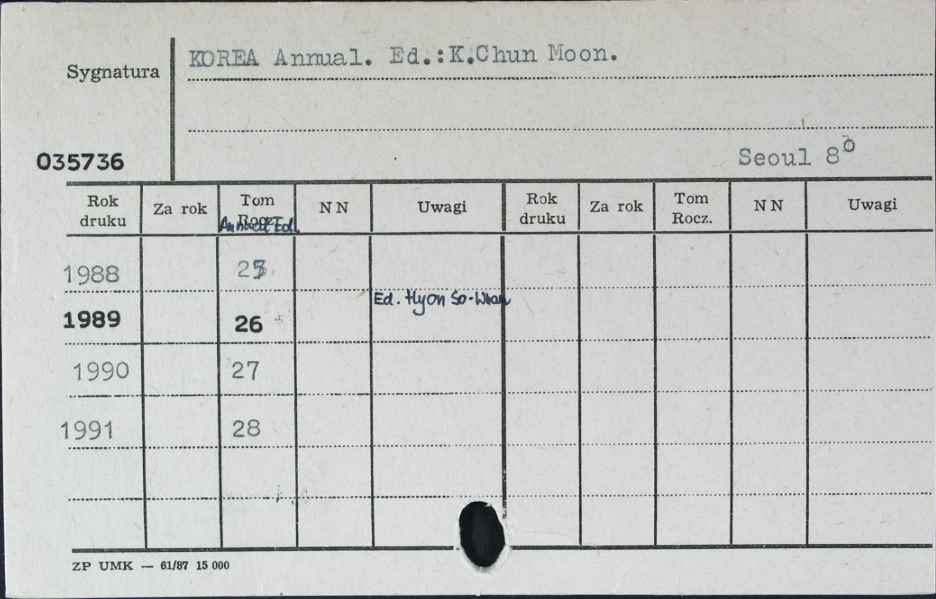 KOREA Annual. Ed.:K.Chun Moon.
Sygnatura
035736
Seoul 8⁰
Rok druku Za rok Tom Rocz. NN Uwagi Rok druku Za rok Tom Rocz. NN Uwagi
Ed.
1988 25
Ed. Hyon So-Whan
1989 26
1990 27
1991 28
ZP UMK — 61/87 15 000